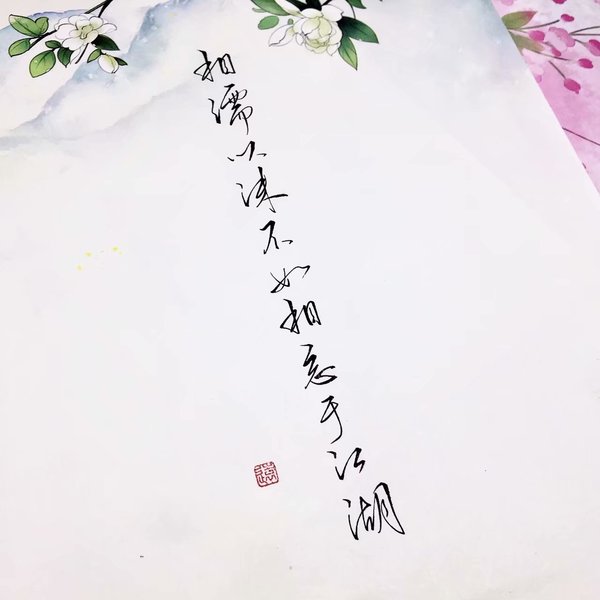 相濡以沫不如相忘于江湖